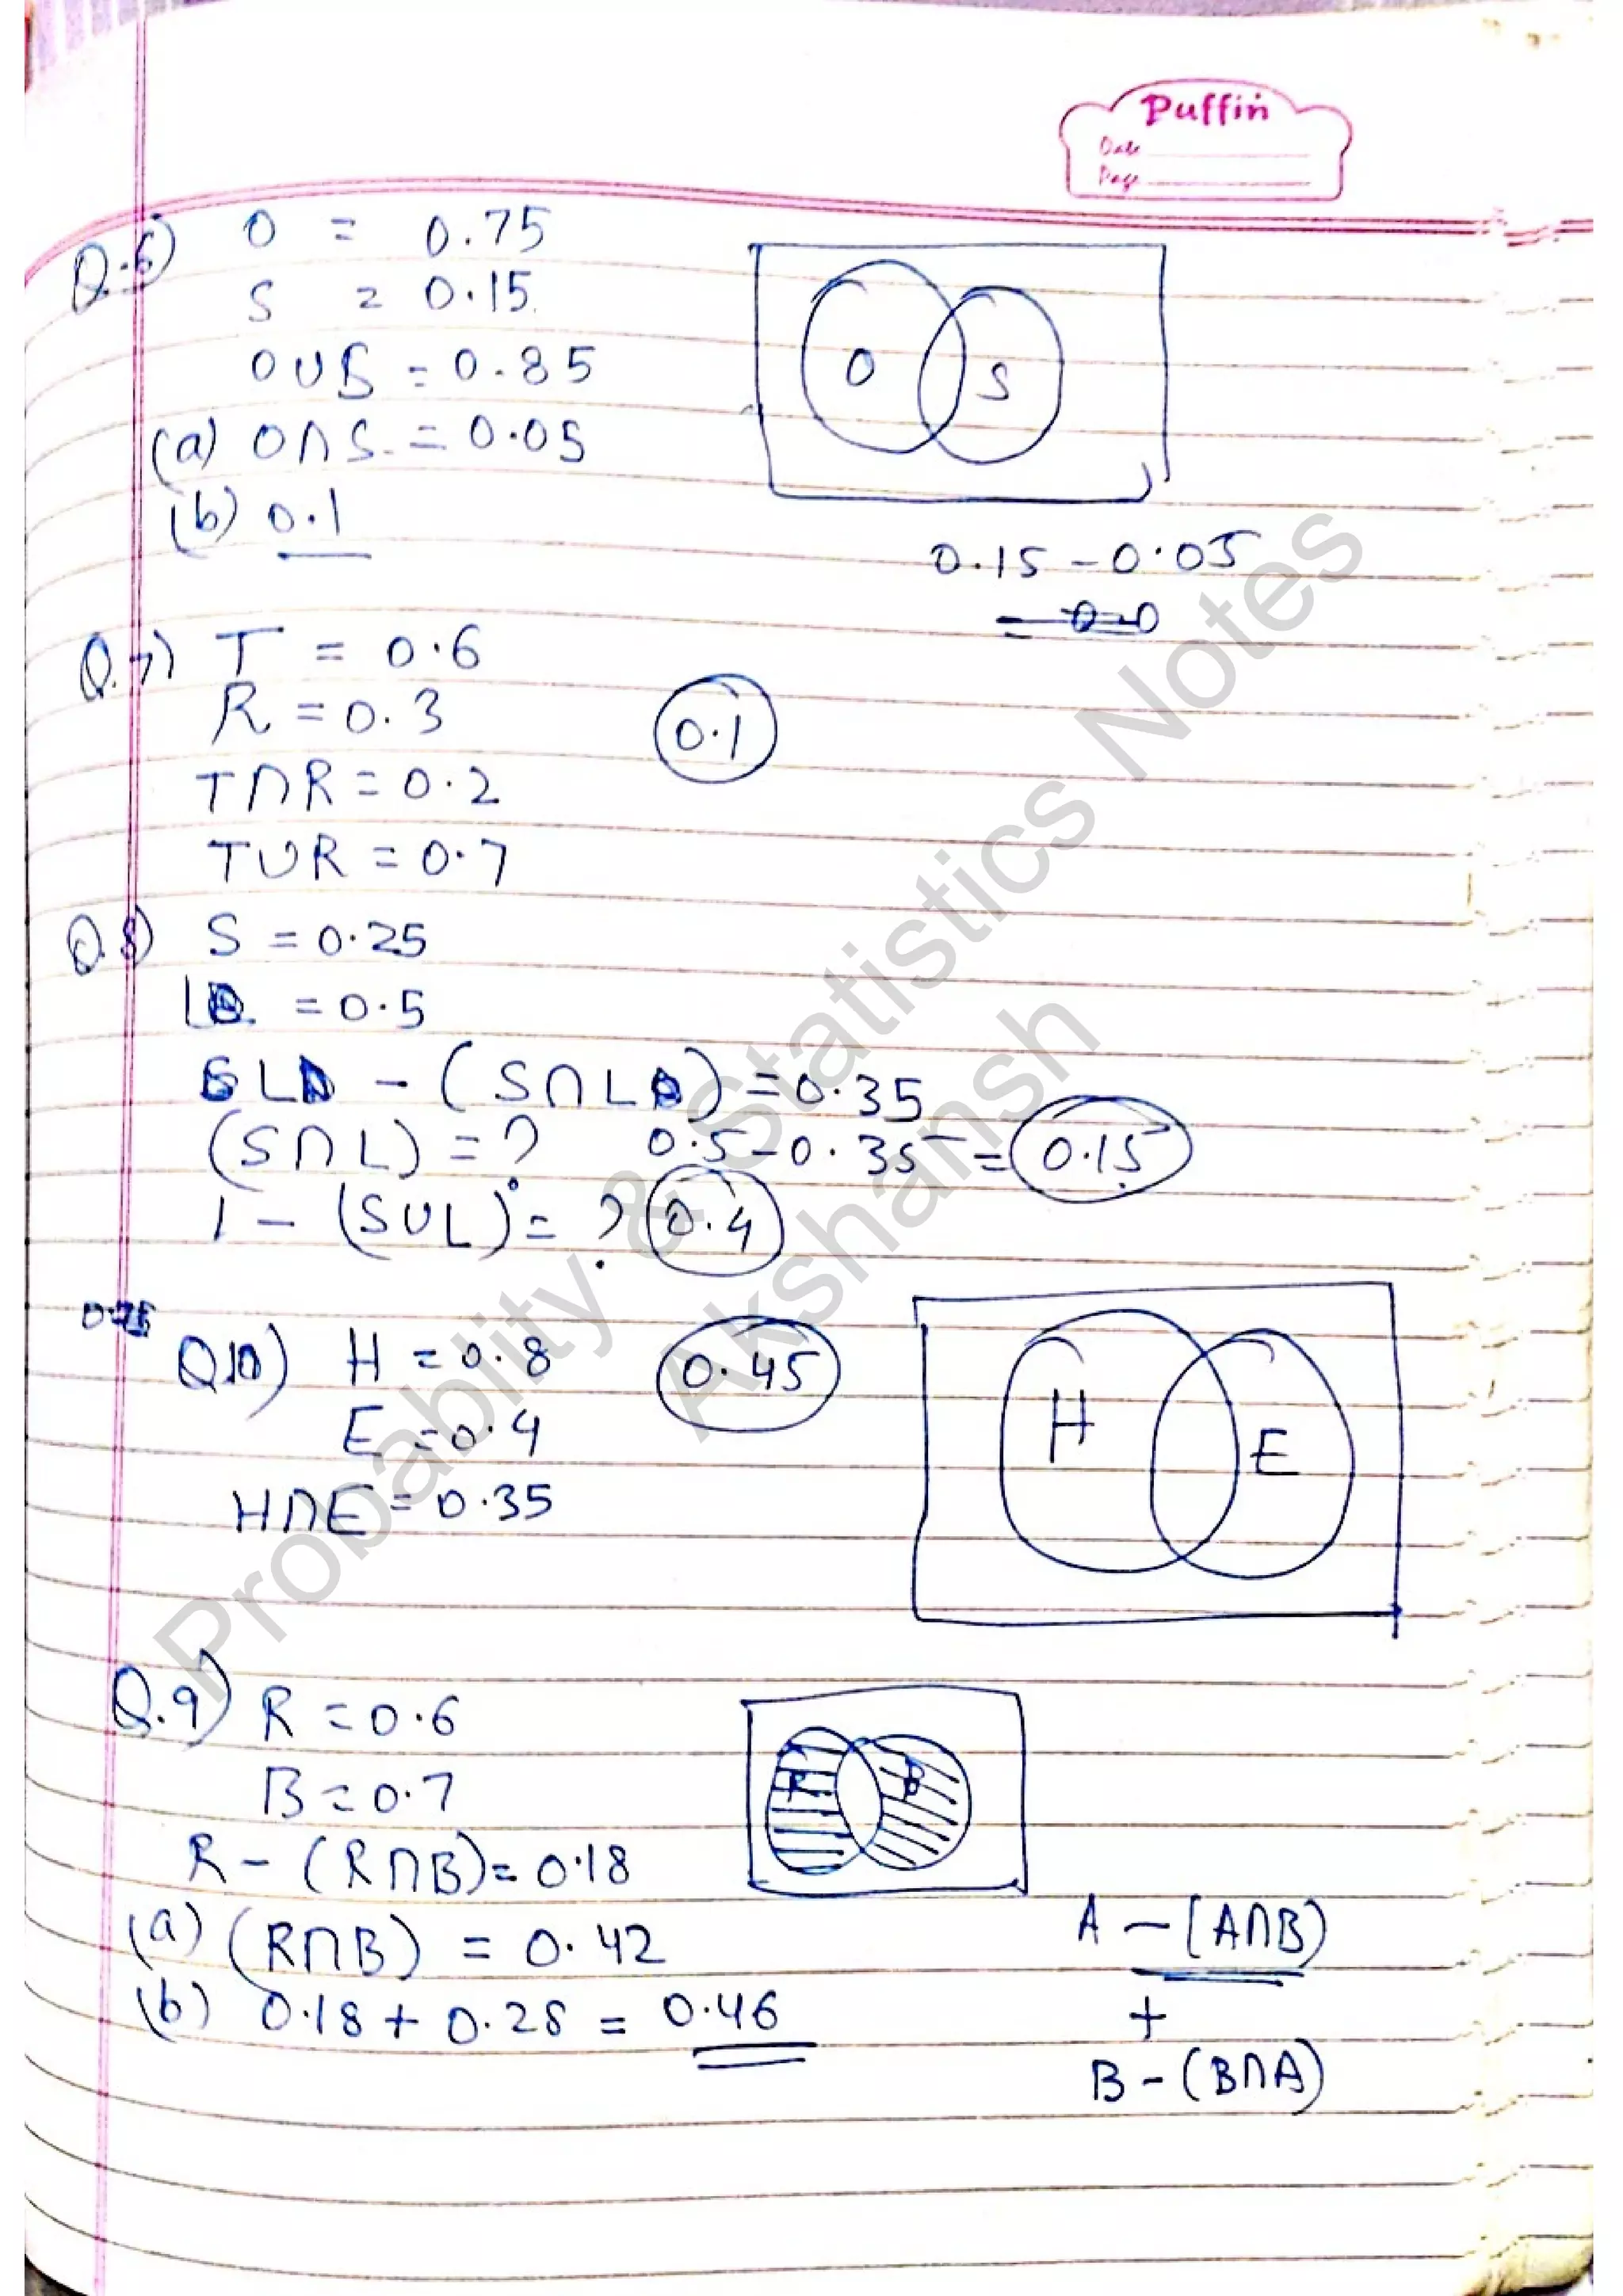 Puffin
Date
Page
Q.6) O = 0.75
S = 0.15
O∪S = 0.85
(a) O∩S = 0.05
(b) 0.1
O S
0.15 - 0.05
Q.7) T = 0.6
R = 0.3
0.1
T∩R = 0.2
T∪R = 0.7
Q.8) S = 0.25
L = 0.5
L - (S∩L) = 0.35
(S∩L) = ? 0.5 - 0.35 = 0.15
1 - (S∪L) = ? 0.4
Q10) H = 0.8
0.45
E = 0.4
H∩E = 0.35
H E
Q.9) R = 0.6
B = 0.7
R B
R - (R∩B) = 0.18
(a) (R∩B) = 0.42
(b) 0.18 + 0.28 = 0.46
A - (A∩B)
+
B - (B∩A)
Probablity & Statistics Notes
Akshansh